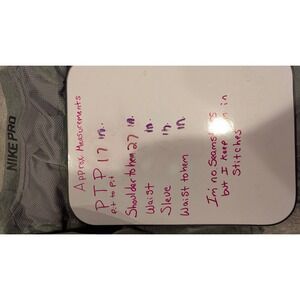 NIKE PRO
Approx Measurements
PTP 17 in.
Pit to Pit
Shoulder to hem 27 in.
Waist in.
Sleve in.
Waist to hem in
I'm no Seamstress
but I keep in
Stitches